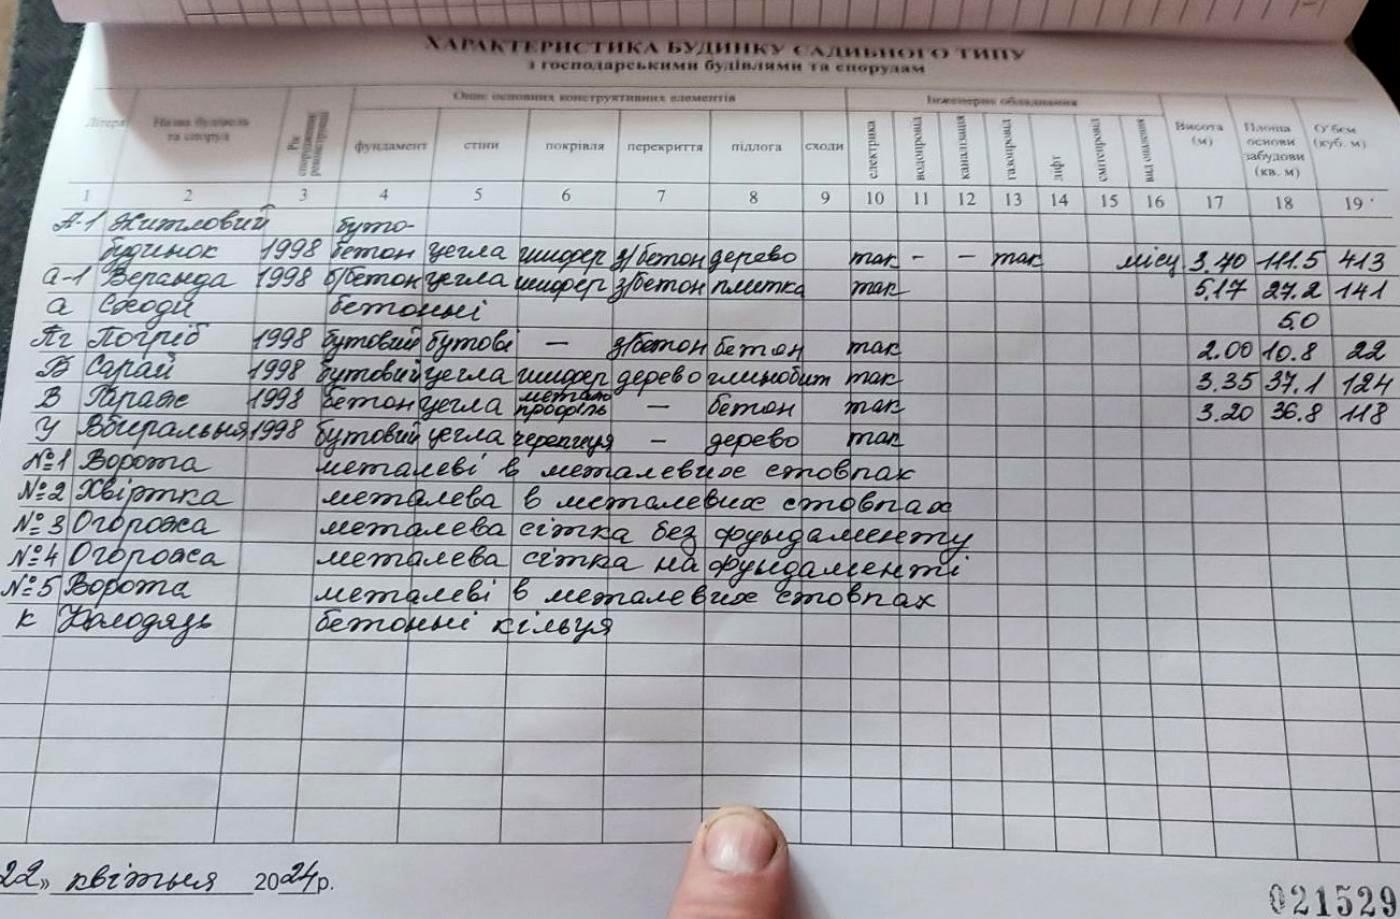 ХАРАКТЕРИСТИКА БУДИНКУ САДИБНОГО ТИПУ
з господарськими будівлями та спорудам
Літера Назва будівель та споруд Рік спорудження реконструкції Опис основних конструктивних елементів Інженерне обладнання Висота (м) Площа основи забудови (кв. м) О'бєм (куб. м)
фундамент стіни покрівля перекриття підлога сходи електрика водопровід каналізація газопровід ліфт сміттєпровід вид опалення
1 2 3 4 5 6 7 8 9 10 11 12 13 14 15 16 17 18 19
А-1 Житловий буто-
будинок 1998 бетон цегла шифер з/бетон дерево так - - так місц 3.70 111.5 413
а-1 Веранда 1998 б/бетон цегла шифер з/бетон плитка так 5.17 27.2 141
а Сходи бетонні 5.0
Пг Погріб 1998 бутовий бутові — з/бетон бетон так 2.00 10.8 22
Б Сарай 1998 бутовий цегла шифер дерево глинобит так 3.35 37.1 124
В Гараж 1998 бетон цегла метало профіль — бетон так 3.20 36.8 118
У Вбиральня 1998 бутовий цегла черепиця — дерево так
№1 Ворота металеві в металевих стовпах
№2 Хвіртка металева в металевих стовпах
№3 Огорожа металева сітка без фундаменту
№4 Огорожа металева сітка на фундаменті
№5 Ворота металеві в металевих стовпах
К Колодязь бетонні кільця
22» квітня 2024р.
021529